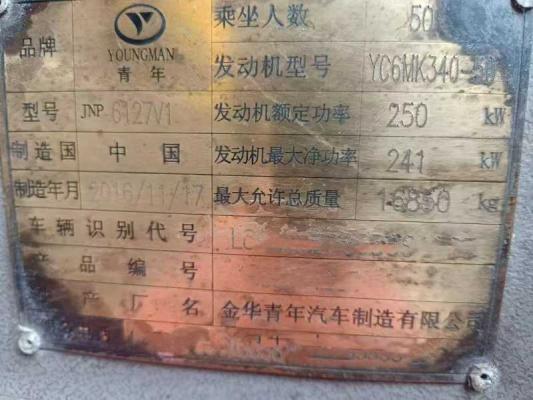 品牌 YOUNGMAN 青年 乘坐人数 50
发动机型号 YC6MK340-50
型号 JNP 6127V1 发动机额定功率 250 kW
制造国 中国 发动机最大净功率 241 kW
制造年月 2016/11/17 最大允许总质量 16850 kg
车辆识别代号 LC
产品编号
厂名 金华青年汽车制造有限公司